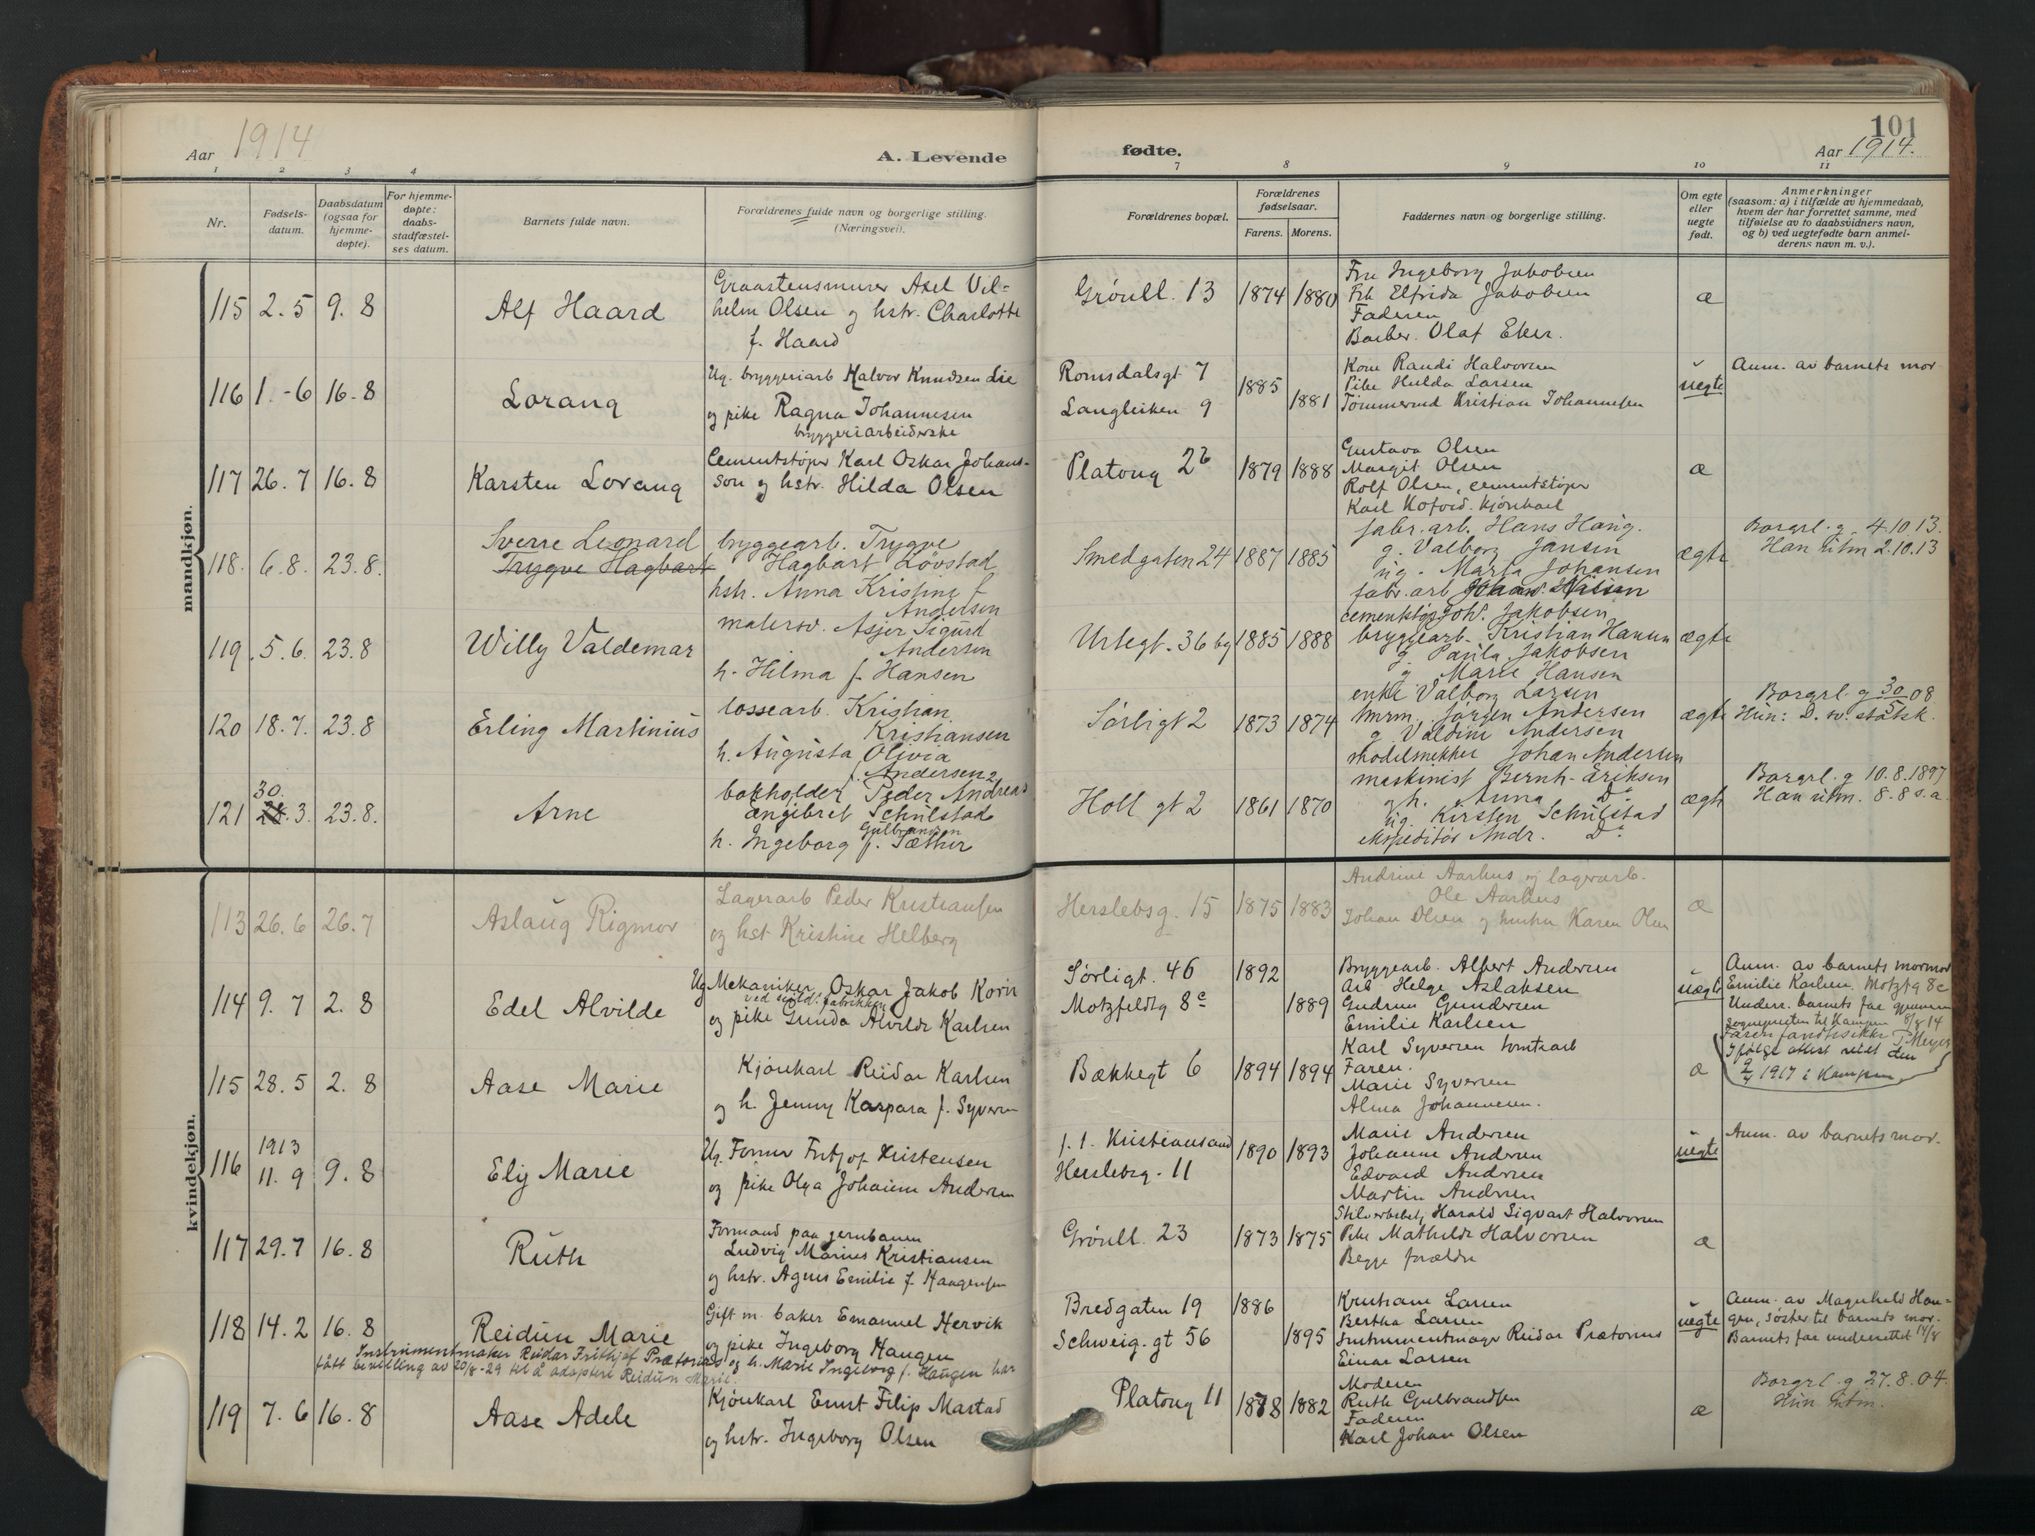 101
Aar 1914
A. Levende
fødte.
Aar 1914.
1 2 3 4 7 8 9 10 11
Nr.
Fødsels-
datum.
Daabsdatum
(ogsaa for
hjemme-
døpte).
For hjemme-
døpte:
daabs-
stadfæstel-
ses datum.
Barnets fulde navn.
Forældrenes fulde navn og borgerlige stilling.
(Næringsvei).
Forældrenes bopæl.
Forældrenes
fødselsaar.
Farens. Morens.
Faddernes navn og borgerlige stilling.
Om egte
eller
uegte
født.
Anmerkninger
(saasom: a) i tilfælde av hjemmedaab,
hvem der har forrettet samme, med
tilføielse av to daabsvidners navn,
og b) ved uegtefødte barn anmel-
derens navn m. v.).
mandkjøn.
115 2.5 9.8 Alf Haard
Graastensmurer Axel Vil-
helm Olsen og hstr. Charlotte
f. Haard
Grønll. 13 1874 1880
Fru Ingeborg Jakobsen
Frk Elfrida Jakobsen
Faderen
Barber Olaf Eker.
æ
116 1.-6 16.8 Lorang
Ug. bryggeriarb Halvor Knudsen Lie
og pike Ragna Johannesen
bryggeriarbeiderske
Romsdalsgt 7
Langleiken 9
1885 1881
Kone Randi Halvorsen
Pike Hulda Larsen
Tømmermd Kristian Johannesen
uegte
Anm. av barnets mor
117 26.7 16.8 Karsten Lorang
Cementstøper Karl Oskar Johans-
son og hstr. Hilda Olsen
Platoug 2b 1879 1888
Gustava Olsen
Margit Olsen
Rolf Olsen, cementstøper
Karl Kofoed. kjørekarl
æ
118. 6.8. 23.8. Sverre Leonard
Trygve Hagbart
bryggearb. Trygve
Hagbart Løvstad
hstr. Anna Kristine f
Andersen
Smedgaten 24 1887 1885
fabr. arb. Hans Haug.
g. Valborg Jansen
ug. Marta Johansen
fabr. arb Johan Nilsen
ægte
Borgrl. g. 4.10.13.
Han utm 2.10.13
119. 5.6. 23.8 Willy Valdemar
malersv. Asjer Sigurd
Andersen
h. Hilma f. Hansen
Urtegt. 36 bg 1885 1888
cementstøp Joh. Jakobsen.
bryggearb. Kristian Hansen
g. Paula Jakobsen
g. Marie Hansen
ægte
120 18.7. 23.8 Erling Martinius
lossearb. Kristian
Kristiansen
h. Augusta Olivia
f. Andersen
Sørligt 2 1873 1874
enke Valborg Larsen
tmrm. Jørgen Andersen
g. Valdine Andersen
modelsnekker Johan Andersen
ægte
Borgrl. g 30/5 08
Hun: D. v. statsk.
121 30. 3. 23.8. Arne
bokholder Peder Andreas
Engibret Schulstad
Gulbransen
h. Ingeborg f. Sæther
Holl gt 2 1861 1870
maskinist Bernh. Eriksen
g. h. Anna Do
ug. Kirsten Schulstad
ekspeditør Andr. Do
ægte
Borgrl. g 10.8.1897
Han utm. 8.8 s.a.
kvindekjøn.
113 26.6 26.7 Aslaug Rigmor
Lagerarb Peder Kristiansen
og hst Kristine Helberg
Herslebsg. 15 1875 1883
Andrine Aarhus og lagerarb.
Ole Aarhus
Johan Olsen og hustru Karen Olsen
æ
114 9.7 2.8 Edel Alvilde
Ug Mekaniker Oskar Jakob Korn
og pike Gunda Alvilde Karlsen
Sørligt. 46
Motzfeldtg 8c
1892 1889
Bryggearb. Albert Andersen
Arb Helge Aslaksen
Gudrun Gundersen
Emilie Karlsen
uægte
Anm. av barnets mormor
Emilie Karlsen. Motzfg 8c
Underr. barnets far gjennem
sogneprsten til Kampen 8/8 14
115 28.5 2.8 Aase Marie
Kjørekarl Reidar Karlsen
og h. Jenny Kaspara f. Syversen
Bækkegt 6 1894 1894
Karl Syversen tomtearb
Faren.
Marie Syversen
Alma Johannesen.
æ
Ifølge attest viet den
2/4 1917 i Kampen.
116 1913
11.9 9.8 Elly Marie
Ug. Former Fritjof Kristensen
og pike Olga Johanne Andersen
f. t. Kristiansand
Herslebsg. 11
1890 1893
Marie Andersen
Johanne Andersen
Edvard Andersen
Martin Andersen
uegte
Anm. av barnets mor.
117 29.7 16.8 Ruth
Formand paa jernbanen
Ludvig Marius Kristiansen
og hstr. Agnes Emilie f. Haagensen
Grønll. 23 1873 1875
Harald Sigvart Halvorsen
Pike Mathilde Halvorsen
Begge forældre
æ
118 14.2 16.8 Reidun Marie
Gift m. baker Emanuel Hervik
og pike Ingeborg Haugen
Instrumentmaker Reidar Frithjof Prætorius og h. Marie Ingeborg f. Haugen har
fått bevilling av 20/8-29 til å adoptere Reidun Marie.
Bredgaten 19
Schweig. gt 56
1886 1895
Kristiane Larsen
Bertha Larsen
Instrumentmager Reidar Prætorius
Einar Larsen
uegte
Anm. av Magnhild Hau-
gen, søster til barnets mor.
Barnets far underrettet 14/8
119 7.6 16.8 Aase Adele
Kjørekarl Ernst Filip Mastad
og hstr. Ingeborg Olsen
Platoug 11 1878 1882
Moderen
Ruth Gulbrandsen
Faderen
Karl Johan Olsen
æ
Borgrl. g 27.8.04.
Hun utm.